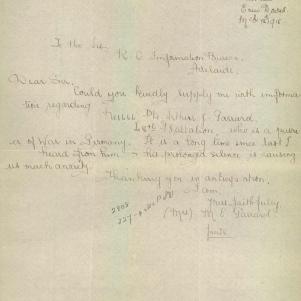 To the Sec.
R C Information Bureau
Adelaide.
Dear Sir,
Could you kindly supply me with informa-
tion regarding
Pte Arthur J. Garrard.
Battalion, who is a prison
er of War in Germany. It is a long time since last I
heard from him & his prolonged silence is causing
us much anxiety.
Thanking you in anticipation.
I am,
Yours faithfully,
(Mrs) M E Garrard